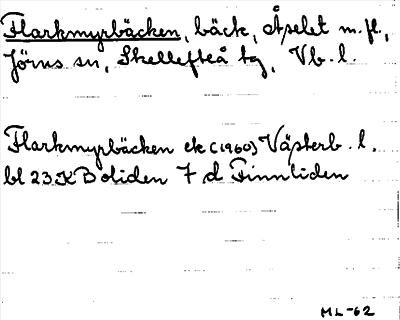 Flarkmyrbäcken, bäck, Åselet m.fl.,
Jörns sn, Skellefteå tg, Vb. l.
Flarkmyrbäcken ek (1960) Västerb. l.
bl 23K Boliden 7 d Finnliden
ML-62